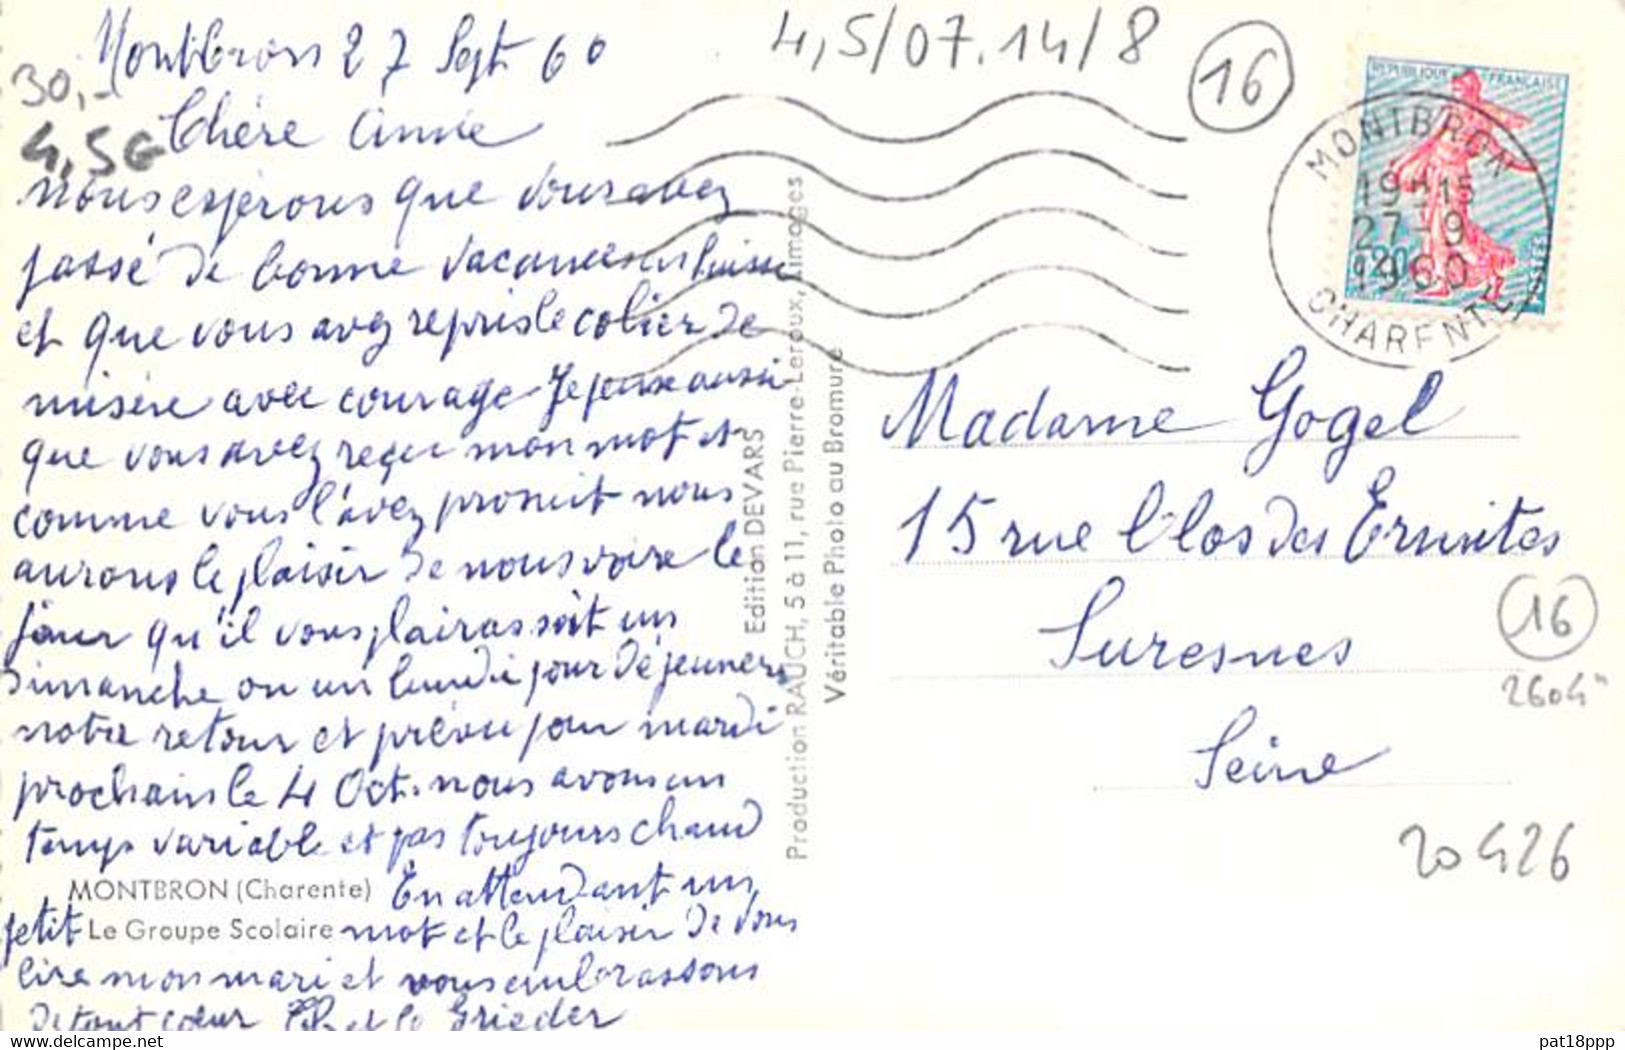 Montbron 27 Sept 60
4,5/07.14/8
16
30,-
4,5€
Chère Amie
nous esperons que vous avez
passé de bonne vacances en Suisse
et que vous avez repris le colier de
misère avec courage Je pense aussi
que vous avez reçu mon mot et
comme vous l'avez promit nous
aurons le plaisir de nous voire le
jour qu'il vous plairas soit un
Dimanche ou un lundi pour déjeuner
notre retour et prévu pour mardi
prochain le 4 Oct. nous avons un
temps variable et pas toujours chaud
En attendant un
petit mot et le plaisir de vous
lire mon mari et vous embrassons
de tout cœur et le Grieder
MONTBRON (Charente)
Le Groupe Scolaire
Edition DEVARS
Production RAUCH, 5 à 11, rue Pierre-Leroux, Limoges
Véritable Photo au Bromure
REPUBLIQUE FRANÇAISE
0,20
MONTBRON
19H15
27-9
1960
CHARENTE
Madame Gogel
15 rue Clos des Ermites
Suresnes
Seine
16
2604
20426
delcampe.net
pat18ppp